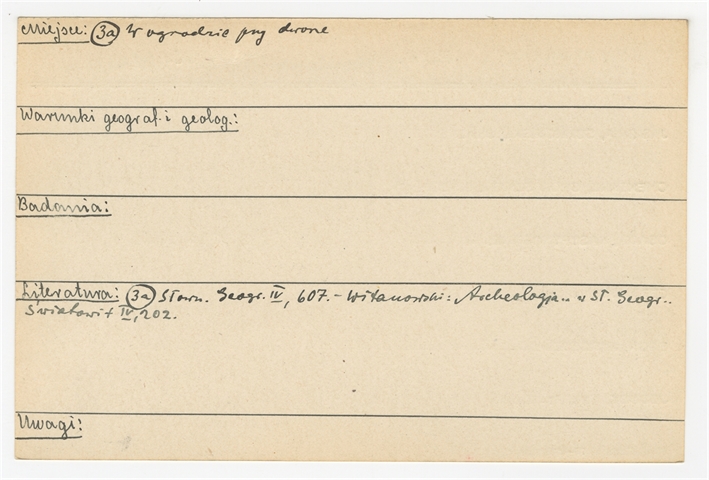 Miejsce: 3a W ogrodzie przy dworze
Warunki geograf. i geolog.:
Badania:
Literatura: 3a Słown. Geogr. IV, 607. - Witanowski: Archeologja.. w Sł. Geogr..
Światowit IV, 202.
Uwagi: